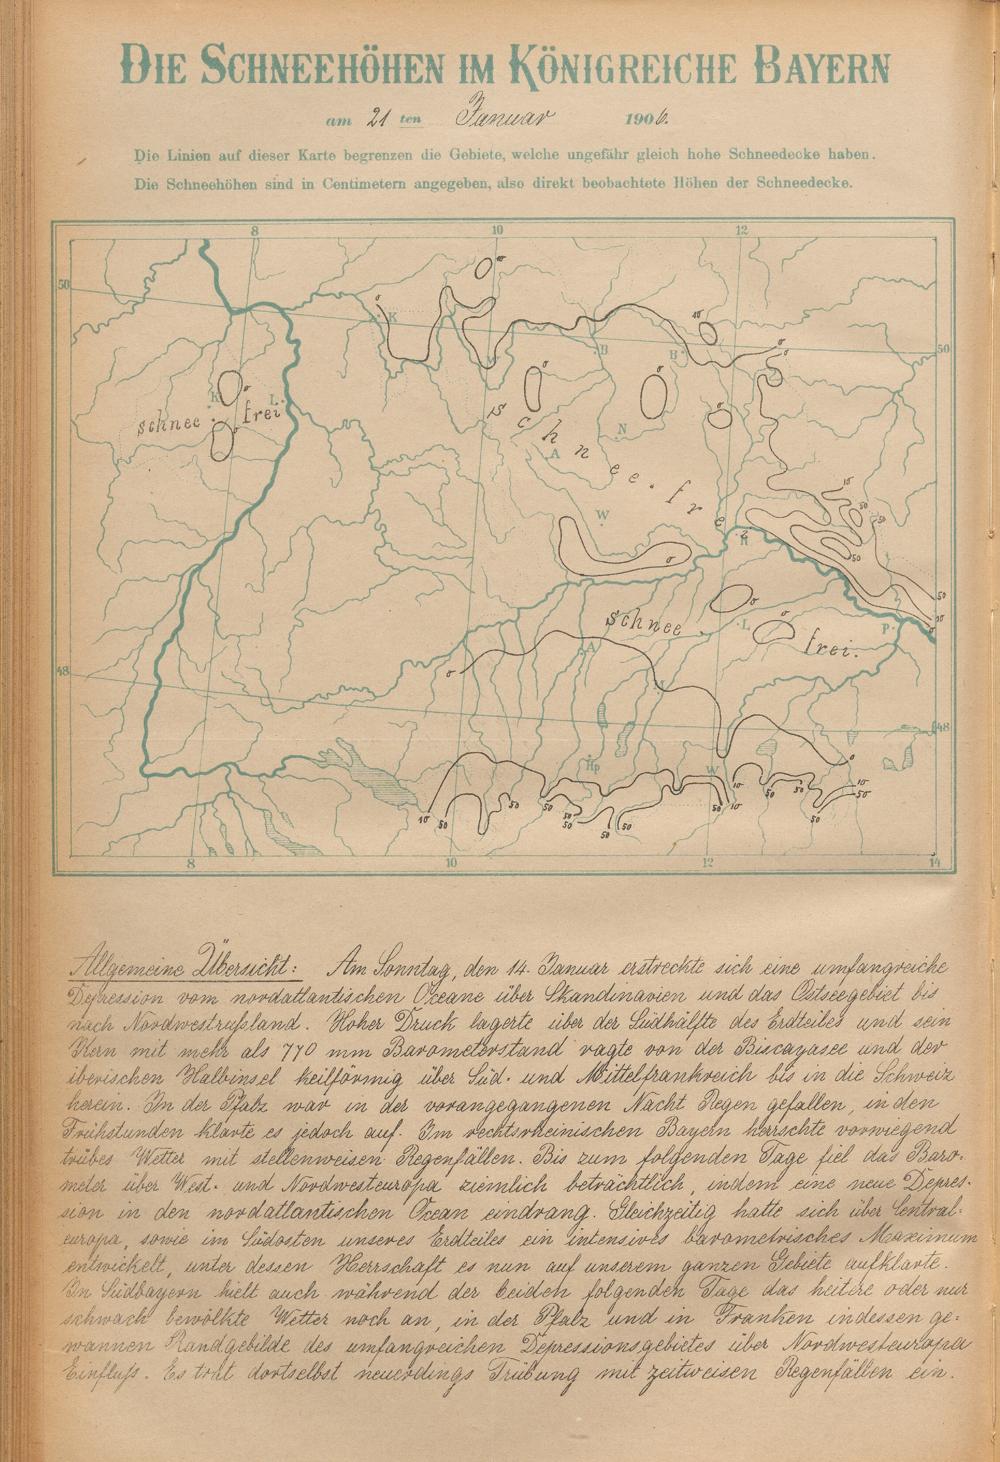 DIE SCHNEEHÖHEN IM KÖNIGREICHE BAYERN
am 21 ten Januar 1906.
Die Linien auf dieser Karte begrenzen die Gebiete, welche ungefähr gleich hohe Schneedecke haben.
Die Schneehöhen sind in Centimetern angegeben, also direkt beobachtete Höhen der Schneedecke.
8 10 12
50
50
K
B B
K L
schnee frei
N
A
schnee . frei
W
R
schnee frei.
L P
A
M
48
48
Hp W
10 50 50 50 50 50 50 50 50 10 10 50 50 50 10 50
8 10 12 14
Allgemeine Übersicht: Am Sonntag, den 14. Januar erstreckte sich eine umfangreiche
Depression vom nordatlantischen Oceane über Skandinavien und das Ostseegebiet bis
nach Nordwestrußland. Hoher Druck lagerte über der Südhälfte des Erdteiles und sein
Kern mit mehr als 770 mm Barometerstand ragte von der Biscayasee und der
iberischen Halbinsel keilförmig über Süd- und Mittelfrankreich bis in die Schweiz
herein. In der Pfalz war in der vorangegangenen Nacht Regen gefallen, in den
Frühstunden klarte es jedoch auf. Im rechtsrheinischen Bayern herrschte vorwiegend
trübes Wetter mit stellenweisen Regenfällen. Bis zum folgenden Tage fiel das Baro-
meter über West- und Nordwesteuropa ziemlich beträchtlich, indem eine neue Depres-
sion in den nordatlantischen Ocean eindrang. Gleichzeitig hatte sich über Central-
europa, sowie im Südosten unseres Erdteiles ein intensives barometrisches Maximum
entwickelt, unter dessen Herrschaft es nun auf unserem ganzen Gebiete aufklarte.
In Südbayern hielt auch während der beiden folgenden Tage das heitere oder nur
schwach bewölkte Wetter noch an, in der Pfalz und in Franken indessen ge-
wannen Randgebilde des umfangreichen Depressionsgebietes über Nordwesteuropa
Einfluß. Es trat dortselbst neuerdings Trübung mit zeitweisen Regenfällen ein.